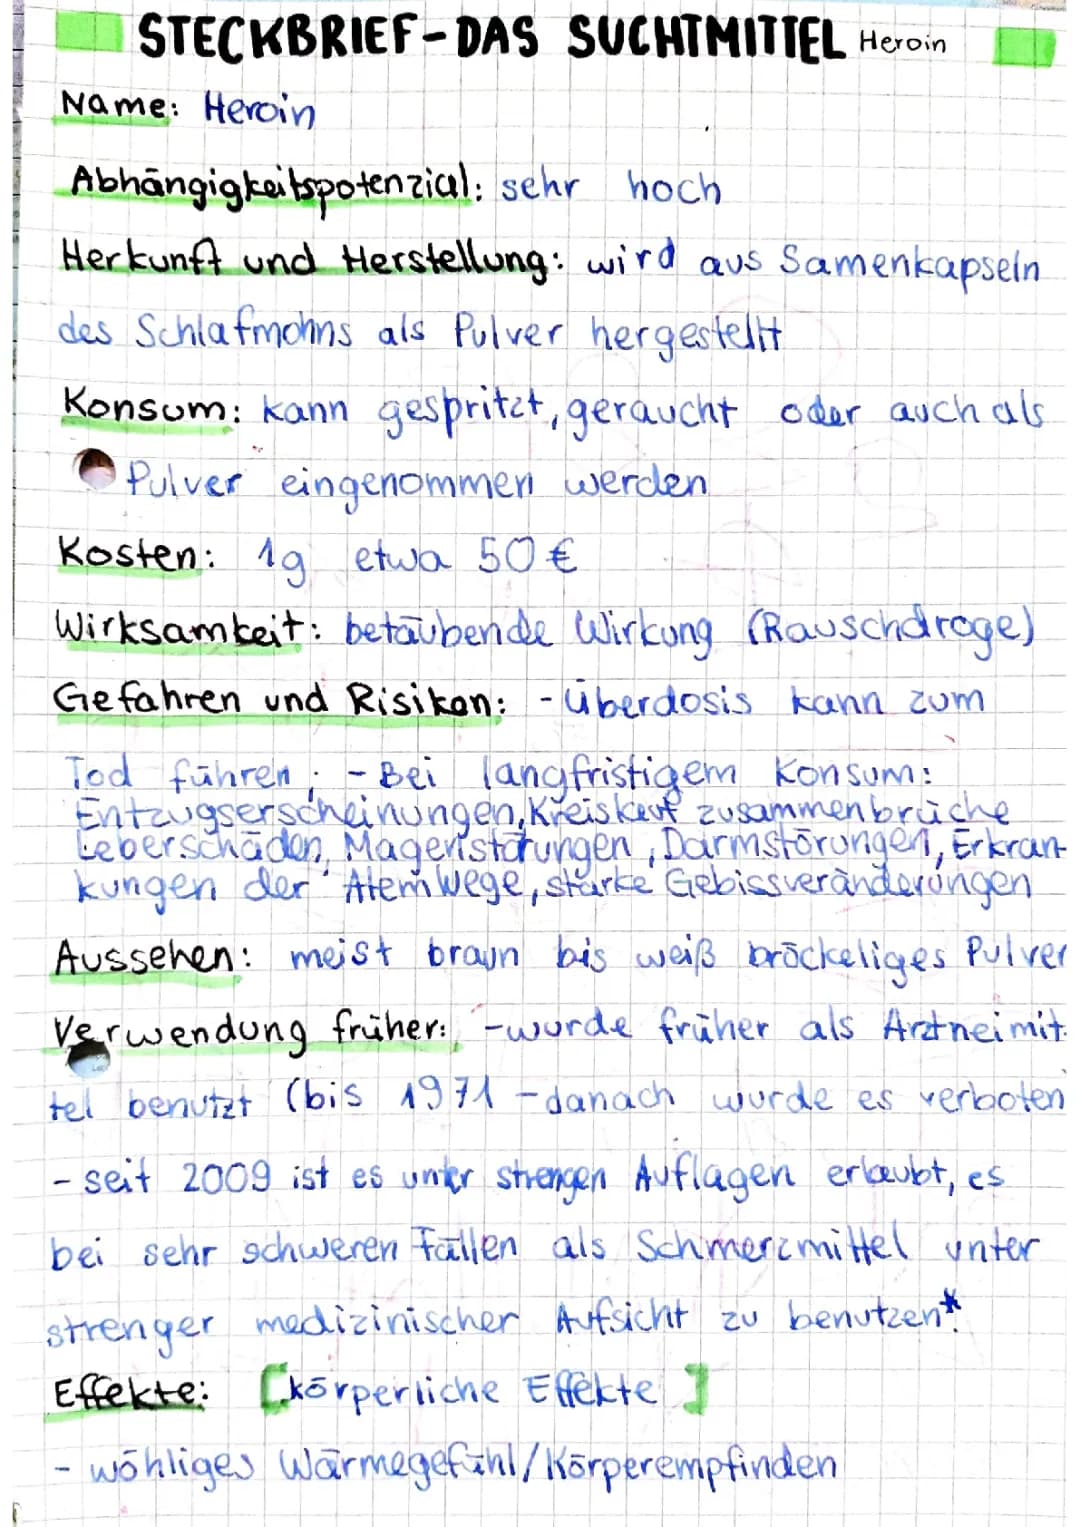 STECKBRIEF-DAS SUCHTMITTEL Heroin
Name: Heroin
Abhängigkeitspotenzial: sehr hoch
Herkunft und Herstellung: wird aus Samenkapseln
des Schlafmohns als Pulver hergestellt
Konsum: kann gespritzt, geraucht oder auch als
Pulver eingenommen werden
Kosten: 1g etwa 50€
Wirksamkeit: betäubende Wirkung (Rauschdroge)
Gefahren und Risiken: -Überdosis kann zum
Tod führen; - Bei langfristigem Konsum:
Entzugserscheinungen, Kreislauf zusammenbrüche
Leberschäden, Magenstörungen, Darmstörungen, Erkran-
kungen der Atemwege, starke Gebissveränderungen
Aussehen: meist braun bis weiß bröckeliges Pulver
Verwendung früher: -wurde früher als Arztneimit-
tel benutzt (bis 1971 -danach wurde es verboten
- seit 2009 ist es unter strengen Auflagen erlaubt, es
bei sehr schweren Fällen als Schmerzmittel unter
strenger medizinischer Aufsicht zu benutzen*
Effekte: [körperliche Effekte]
- wohliges Wärmegefühl/Körperempfinden